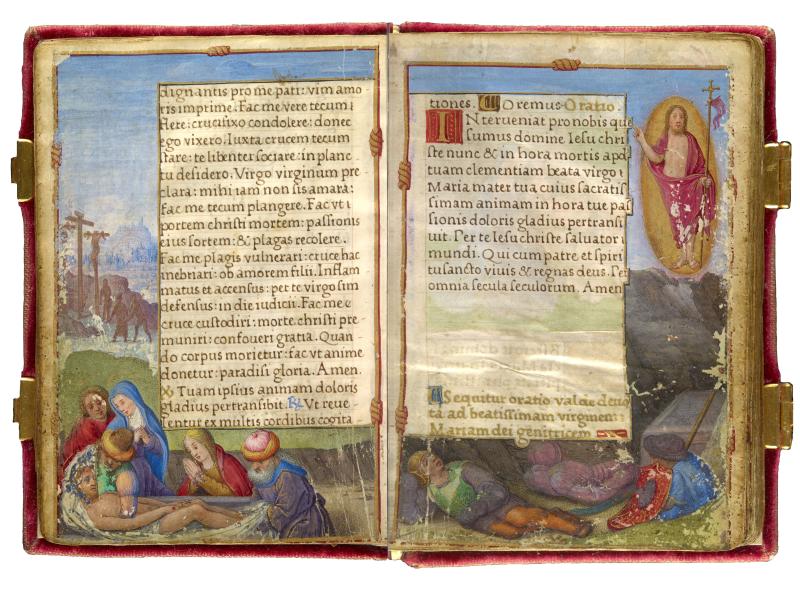 dignantis pro me pati: vim amo
ris imprime. Fac me vere tecum
flere: crucifixo condolere: donec
ego vixero. Iuxta crucem tecum
stare: te libenter sociare: in planc
tu desidero. Virgo virginum pre
clara: mihi iam non sis amara:
fac me tecum plangere. Fac vt
portem christi mortem: passionis
eius sortem: & plagas recolere.
Fac me plagis vulnerari: cruce hac
inebriari: ob amorem filii. Inflam
matus et accensus: per te virgo sim
defensus: in die iudicii. Fac me
cruce custodiri: morte christi pre
muniri: confoueri gratia. Quan
do corpus morietur: fac vt anime
donetur: paradisi gloria. Amen.
Tuam ipsius animam doloris
gladius pertransibit. R. Vt reue
lentur ex multis cordibus cogita
tiones. Oremus. Oratio.
INterueniat pro nobis que
sumus domine Iesu chri
ste nunc & in hora mortis apd
tuam clementiam beata virgo
Maria mater tua cuius sacratis
simam animam in hora tue pas
sionis doloris gladius pertrans
iuit. Per te Iesu christe saluator
mundi. Qui cum patre et spiri
tu sancto viuis & regnas deus. Per
omnia secula seculorum. Amen
Sequitur oratio valde deuo
ta ad beatissimam virginem
Mariam dei genitricem